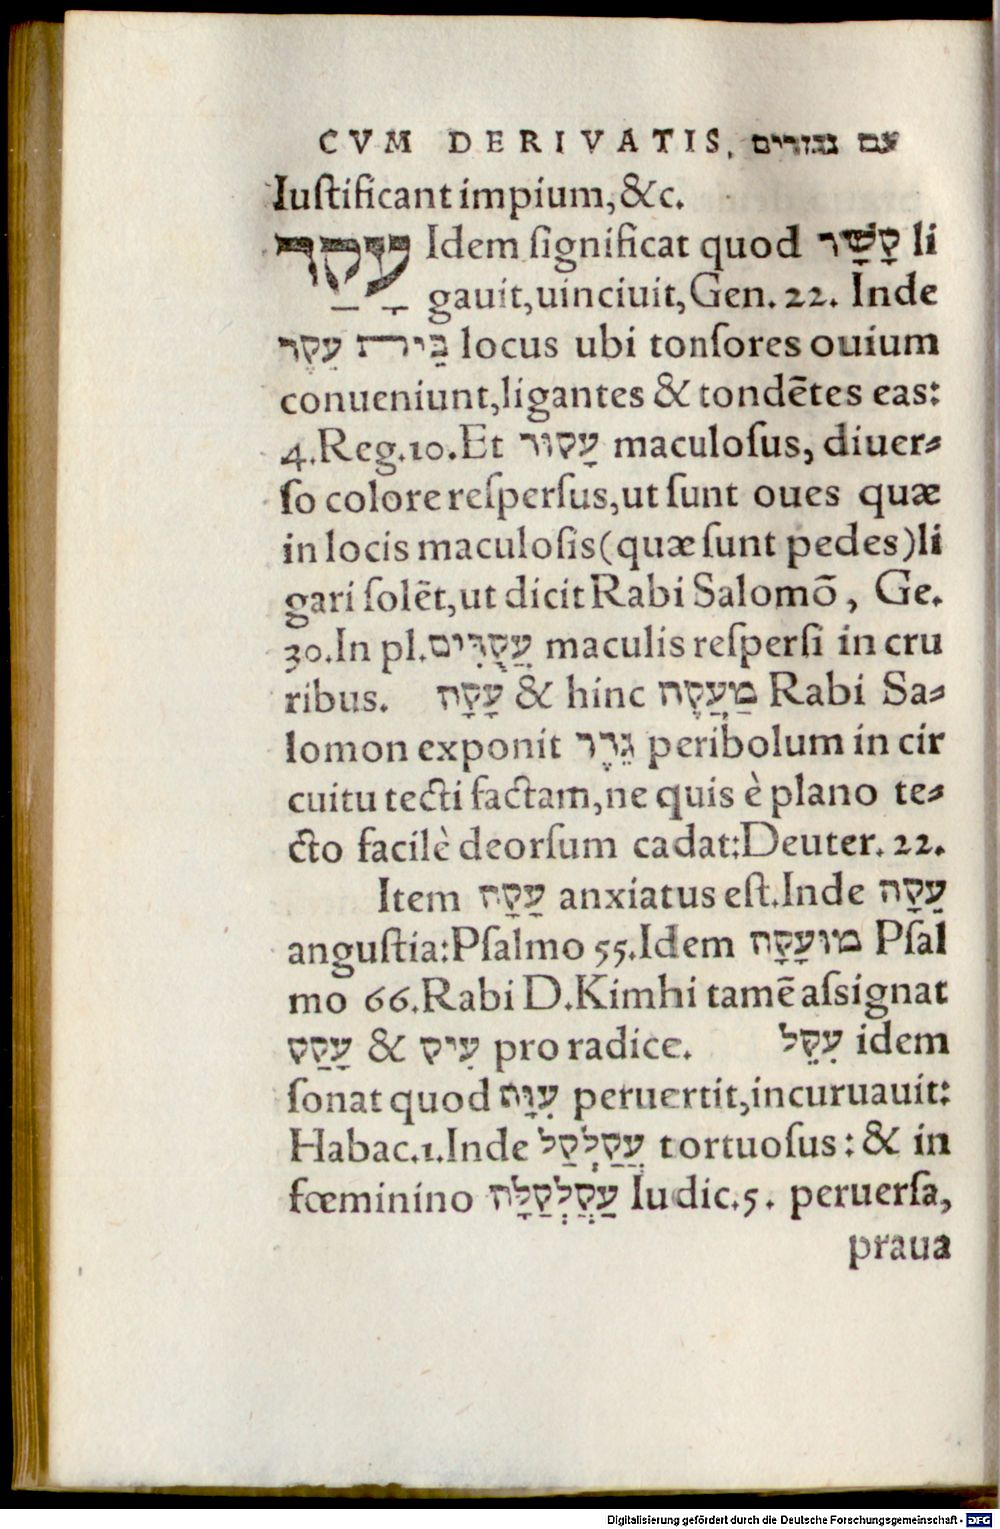 CVM DERIVATIS, עם נגזרים
Iuſtificant impium, &c.
עָקַד Idem ſignificat quod קָשַׁר li
gauit, uinciuit, Gen. 22. Inde
בֵּית עֵקֶד locus ubi tonſores ouium
conueniunt, ligantes & tondētes eas:
4. Reg. 10. Et עָקוּד maculoſus, diuer⸗
ſo colore reſperſus, ut ſunt oues quæ
in locis maculoſis (quæ ſunt pedes) li
gari ſolēt, ut dicit Rabi Salomō, Ge.
30. In pl. עֲקֻדִּים maculis reſperſi in cru
ribus. עָקָה & hinc מַעֲקֶה Rabi Sa⸗
lomon exponit גֶּדֶר peribolum in cir
cuitu tecti factam, ne quis è plano te⸗
cto facilè deorſum cadat: Deuter. 22.
Item עָקָה anxiatus eſt. Inde עָקָה
anguſtia: Pſalmo 55. Idem מוּעָקָה Pſal
mo 66. Rabi D. Kimhi tamē aſsignat
עָקַק & עִיק pro radice. עִקֵּל idem
ſonat quod עִוָּה peruertit, incuruauit:
Habac. 1. Inde עֲקַלְקַל tortuoſus: & in
fœminino עֲקַלְקַלָּה Iudic. 5. peruerſa,
praua
Digitalisierung gefördert durch die Deutsche Forschungsgemeinschaft - DFG